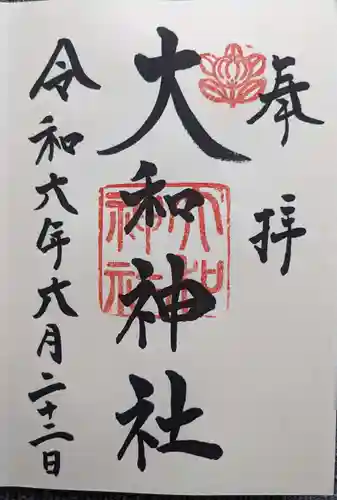 奉拝
大和神社
大和神社
令和六年六月二十二日